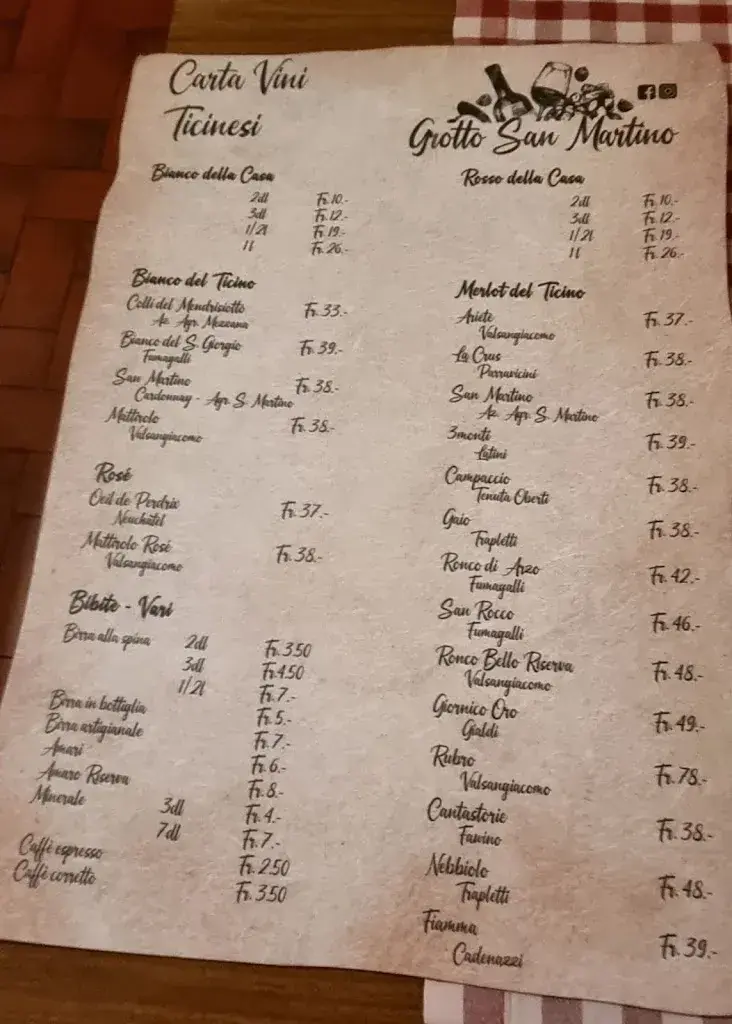 Carta Vini
Ticinesi
Grotto San Martino
Bianco della Casa
2dl Fr. 10.-
3dl Fr. 12.-
1/2l Fr. 19.-
1l Fr. 26.-
Bianco del Ticino
Colli del Mendrisiotto Fr. 33.-
Az. Agr. Mezzana
Bianco del S. Giorgio Fr. 39.-
Fumagalli
San Martino Fr. 38.-
Cardonnay - Agr. S. Martino
Mattirolo Fr. 38.-
Valsangiacomo
Rosé
Oeil de Perdrix Fr. 37.-
Neuchâtel
Mattirolo Rosé Fr. 38.-
Valsangiacomo
Bibite - Vari
Birra alla spina 2dl Fr. 3.50
3dl Fr. 4.50
1/2l Fr. 7.-
Birra in bottiglia Fr. 5.-
Birra artigianale Fr. 7.-
Amari Fr. 6.-
Amaro Riserva Fr. 8.-
Minerale 3dl Fr. 4.-
7dl Fr. 7.-
Caffè espresso Fr. 2.50
Caffè corretto Fr. 3.50
Rosso della Casa
2dl Fr. 10.-
3dl Fr. 12.-
1/2l Fr. 19.-
1l Fr. 26.-
Merlot del Ticino
Ariete Fr. 37.-
Valsangiacomo
La Crus Fr. 38.-
Parravicini
San Martino Fr. 38.-
Az. Agr. S. Martino
3monti Fr. 39.-
Latini
Campaccio Fr. 38.-
Tenuta Oberti
Gaio Fr. 38.-
Trapletti
Ronco di Arzo Fr. 42.-
Fumagalli
San Rocco Fr. 46.-
Fumagalli
Ronco Bello Riserva Fr. 48.-
Valsangiacomo
Giornico Oro Fr. 49.-
Gialdi
Rubro Fr. 78.-
Valsangiacomo
Cantastorie Fr. 38.-
Fawino
Nebbiolo Fr. 48.-
Trapletti
Fiamma Fr. 39.-
Cadenazzi